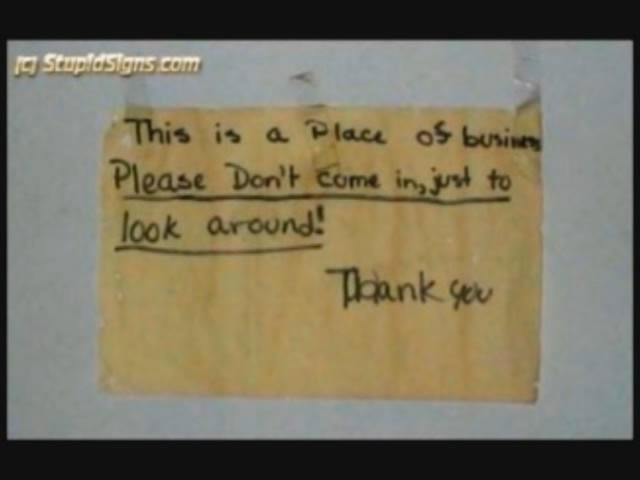 (c) StupidSigns.com
This is a Place of business
Please Don't come in, just to
look around!
Thank you